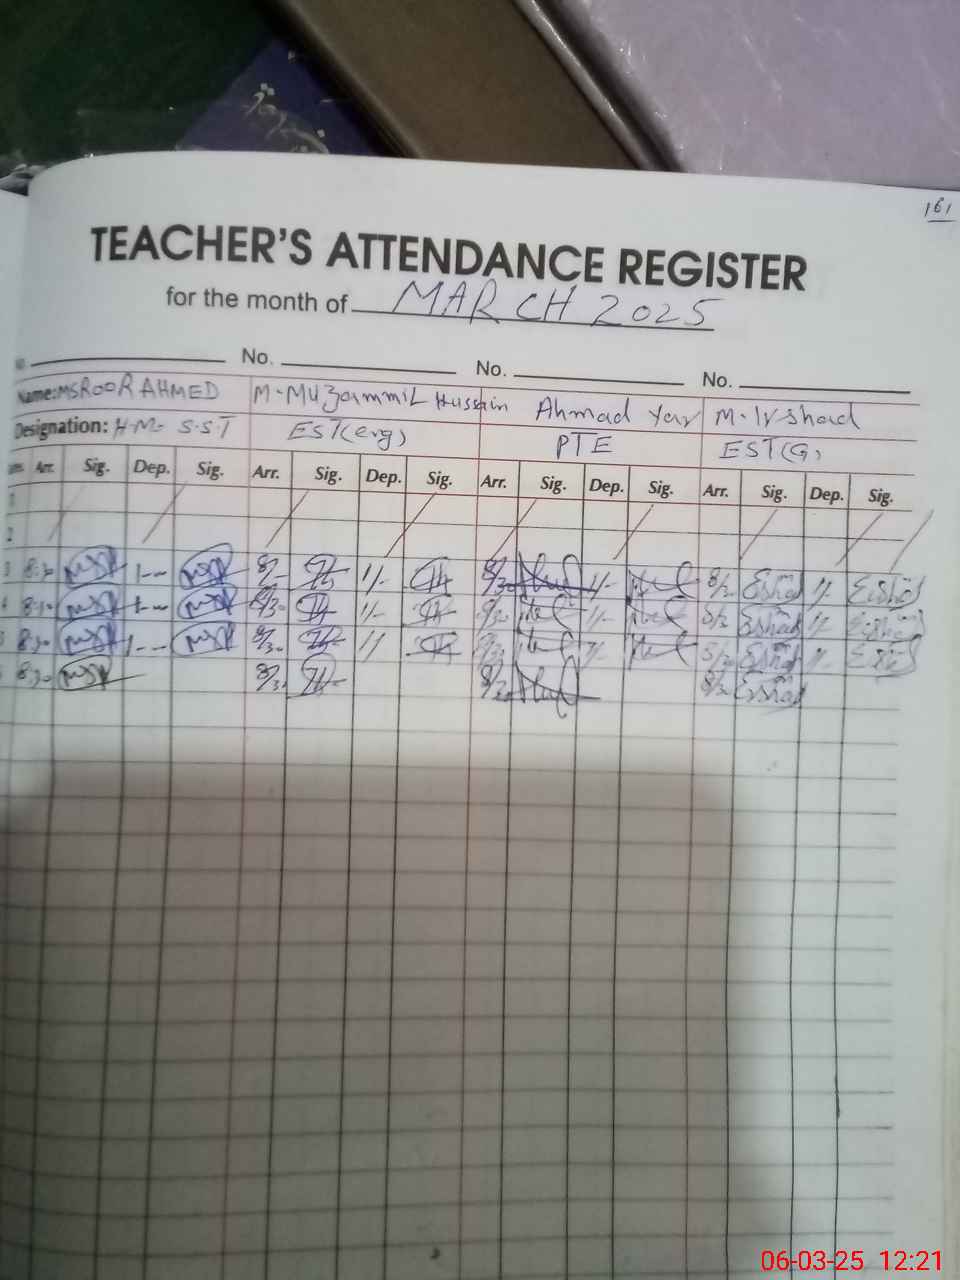 161
TEACHER'S ATTENDANCE REGISTER
for the month of MARCH 2025
No. No. No.
Name: MSROOR AHMED M. Muzammil Hussain Ahmad Yar M. Irshad
Designation: H.M. S.S.T EST(eng) PTE EST(G)
Arr. Sig. Dep. Sig. Arr. Sig. Dep. Sig. Arr. Sig. Dep. Sig. Arr. Sig. Dep. Sig.
1
2
3 8:30 1-- 8/- 1/- 8/30 1/- 8/30 1/-
4 8:30 1-- 8/30 1/- 8/30 1/- 8/30 1/-
5 8:30 1-- 8/30 1/ 8/30 1/- 8/30 1/-
8:30 8/30 8/30 8/30
06-03-25 12:21